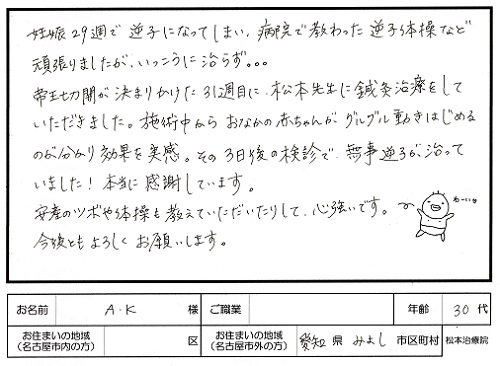 妊娠29週で逆子になってしまい、病院で教わった逆子体操など
頑張りましたが、いっこうに治らず。。。
帝王切開が決まりかけた31週目に、松本先生に鍼灸治療をして
いただきました。施術中からおなかの赤ちゃんがグルグル動きはじめる
のが分かり効果を実感。その3日後の検診で、無事逆子が治って
いました！本当に感謝しています。
安産のツボや体操も教えていただいたりして、心強いです。
わーい
今後ともよろしくお願いします。
お名前 A.K 様 ご職業 年齢 30代
お住まいの地域 (名古屋市内の方) 区 お住まいの地域 (名古屋市外の方) 愛知県みよし市区町村 松本治療院